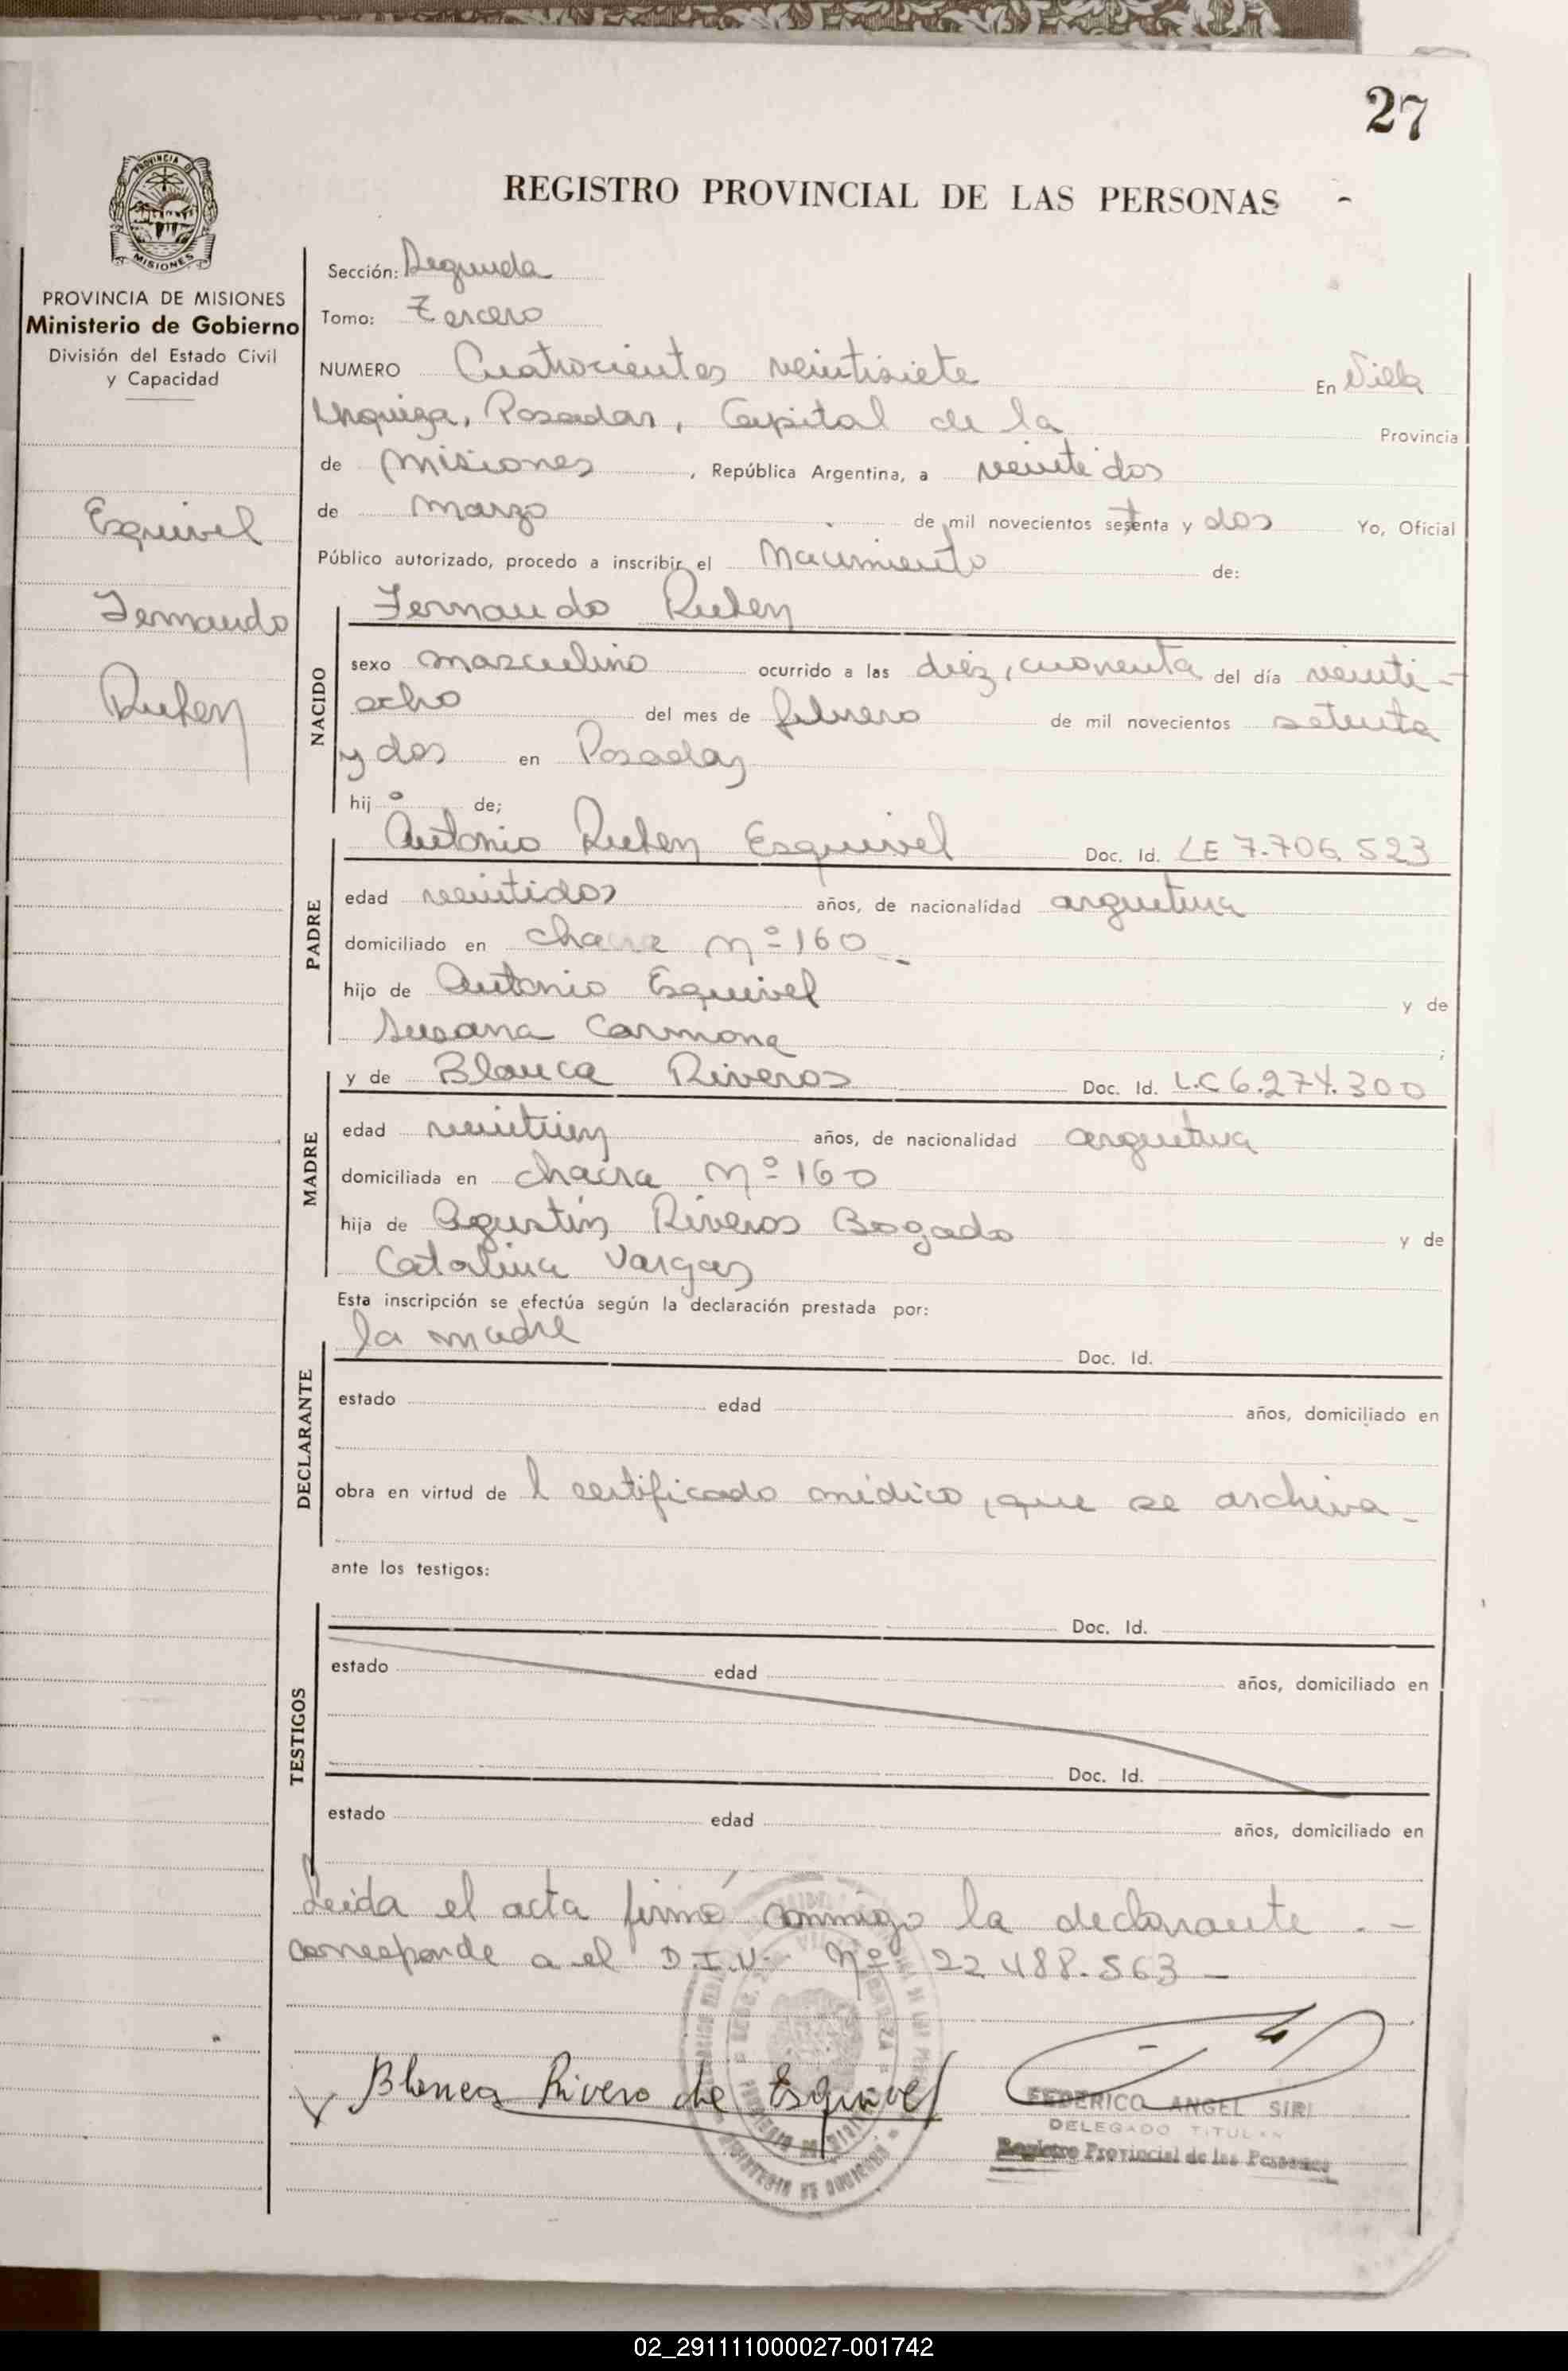 27
REGISTRO PROVINCIAL DE LAS PERSONAS -
PROVINCIA DE MISIONES
Ministerio de Gobierno
División del Estado Civil
y Capacidad
Esquivel
Fernando
Ruben
Sección: Segunda
Tomo: Tercero
NUMERO Cuatrocientos veintisiete En Villa
Urquiza, Posadas, Capital de la Provincia
de Misiones, República Argentina, a veinte dos
de marzo de mil novecientos setenta y dos Yo, Oficial
Público autorizado, procedo a inscribir el Nacimiento de:
Fernando Ruben
NACIDO
sexo masculino ocurrido a las diez, cuarenta del día veinti-
ocho del mes de febrero de mil novecientos setenta
y dos en Posadas
hijo de;
Antonio Ruben Esquivel Doc. Id. LE 7.706.523
PADRE
edad veintidos años, de nacionalidad argentina
domiciliado en chacra nº 160 -
hijo de Antonio Esquivel y de
Susana Carmona ;
y de Blanca Riveros Doc. Id. L.C 6.274.300
MADRE
edad años, de nacionalidad argentina
domiciliada en chacra nº 160
hija de Agustin Riveros Bogado y de
Catalina Vargas
Esta inscripción se efectúa según la declaración prestada por:
la madre Doc. Id.
DECLARANTE
estado edad años, domiciliado en
obra en virtud de l certificado médico, que se archiva -
ante los testigos:
Doc. Id.
TESTIGOS
estado edad años, domiciliado en
Doc. Id.
estado edad años, domiciliado en
Leida el acta firmó conmigo la declarante . -
corresponde a el D.I.U. Nº 22.488.563 -
Blanca Rivero de Esquivel
FEDERICO ANGEL SIRI
DELEGADO TITULAR
Registro Provincial de las Personas
02_291111000027-001742